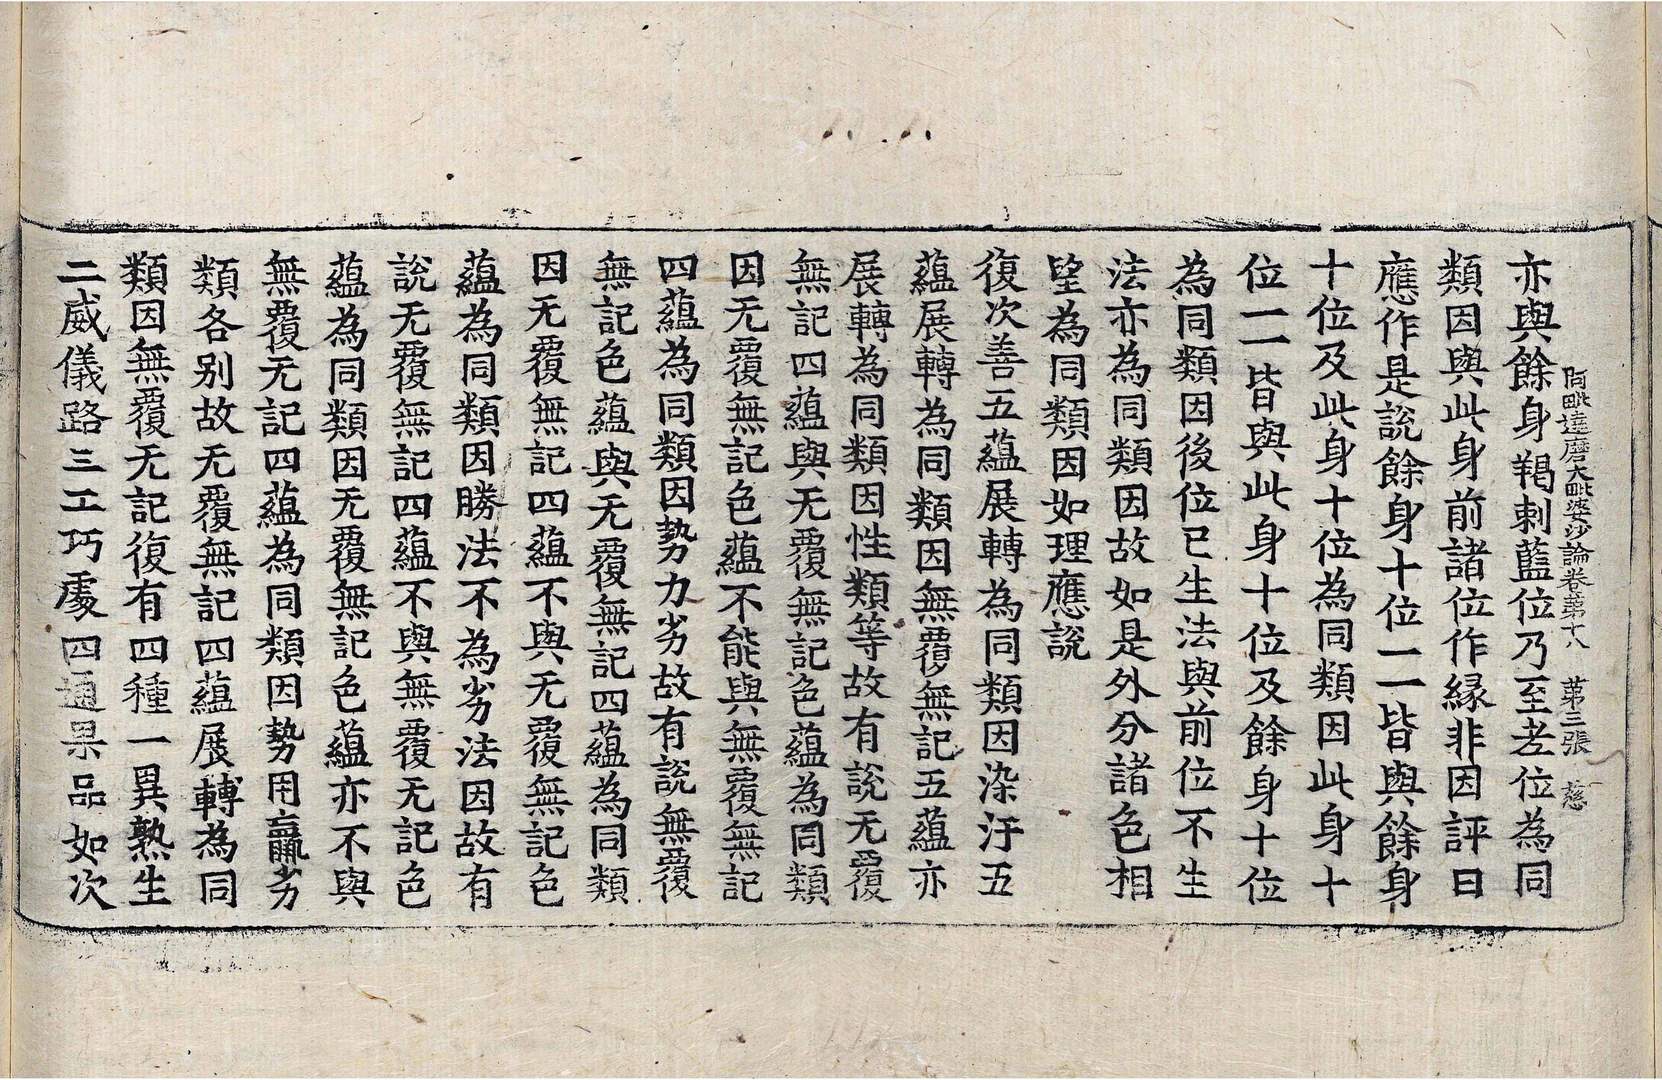 阿毗達磨大毗婆沙論卷第十八 第三張 慈
亦與餘身羯剌藍位乃至老位為同
類因與此身前諸位作縁非因評曰
應作是說餘身十位一一皆與餘身
十位及此身十位為同類因此身十
位一一皆與此身十位及餘身十位
為同類因後位已生法與前位不生
法亦為同類因故如是外分諸色相
望為同類因如理應說
復次善五蘊展轉為同類因染汙五
蘊展轉為同類因無覆無記五蘊亦
展轉為同類因性類等故有說无覆
無記四蘊與无覆無記色蘊為同類
因无覆無記色蘊不能與無覆無記
四蘊為同類因勢力劣故有說無覆
無記色蘊與无覆無記四蘊為同類
因无覆無記四蘊不與无覆無記色
蘊為同類因勝法不為劣法因故有
說无覆無記四蘊不與無覆无記色
蘊為同類因无覆無記色蘊亦不與
無覆无記四蘊為同類因勢用羸劣
類各别故无覆無記四蘊展轉為同
類因無覆无記復有四種一異熟生
二威儀路三工巧處四通果品如次